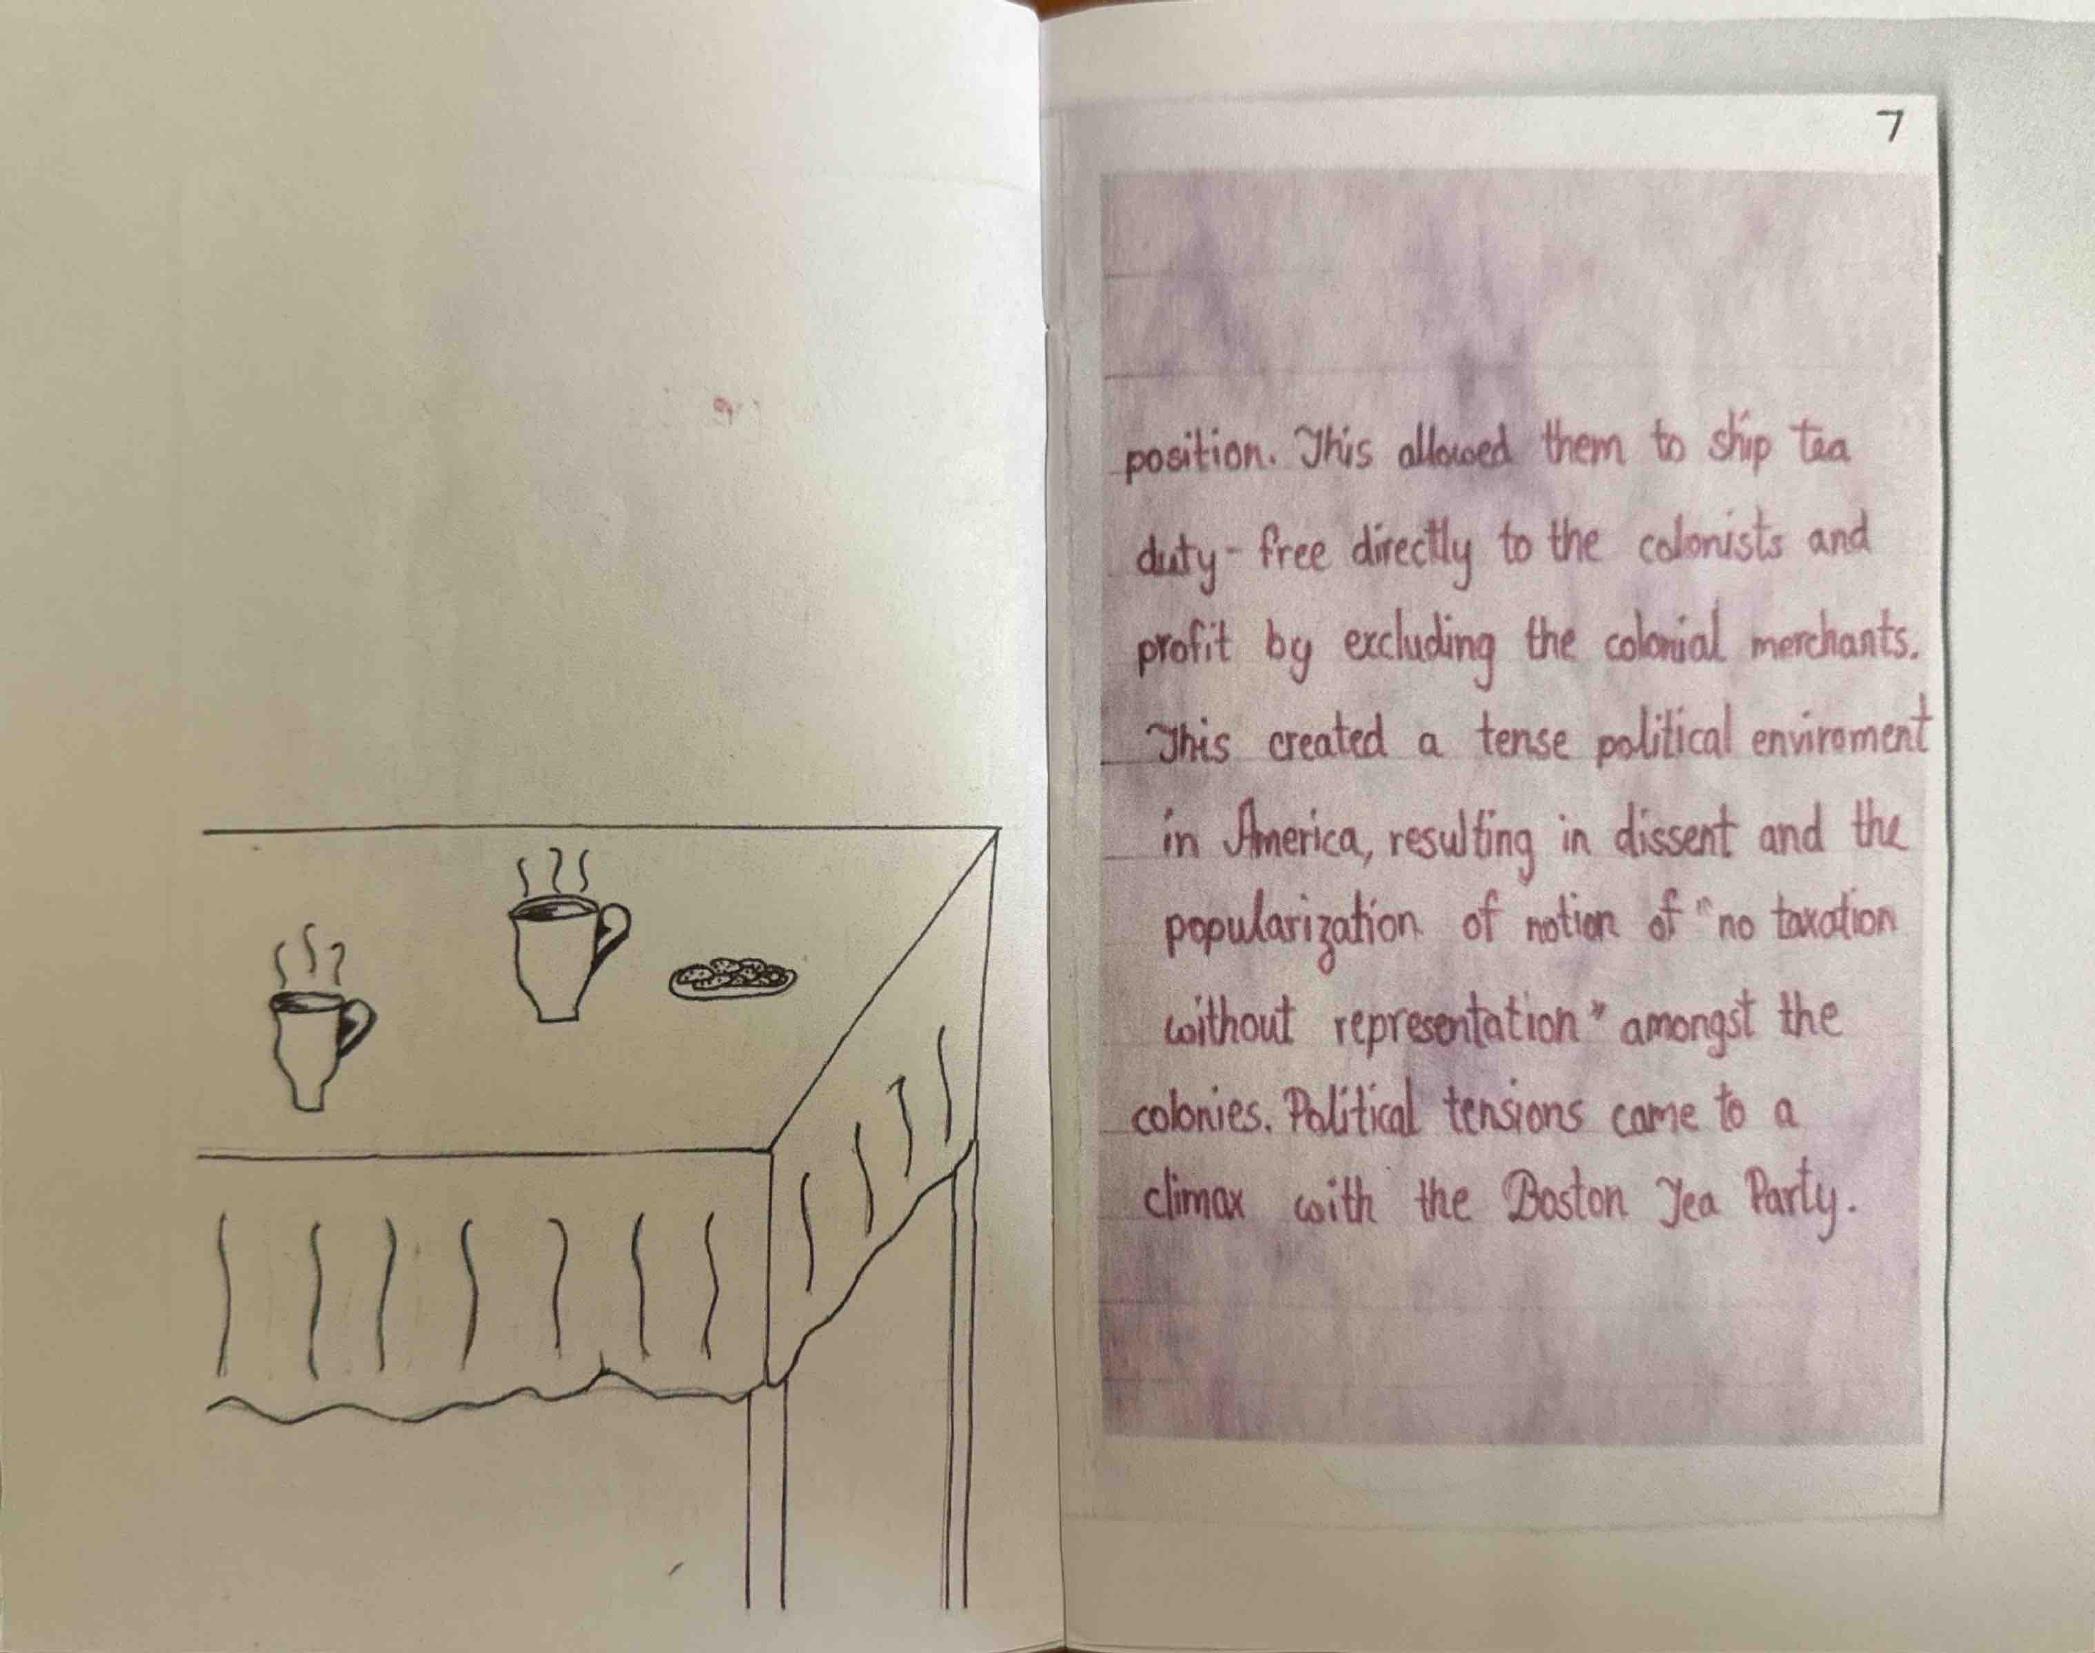 7
position. This allowed them to ship tea
duty-free directly to the colonists and
profit by excluding the colonial merchants.
This created a tense political enviroment
in America, resulting in dissent and the
popularization of notion of "no taxation
without representation" amongst the
colonies. Political tensions came to a
climax with the Boston Tea Party.